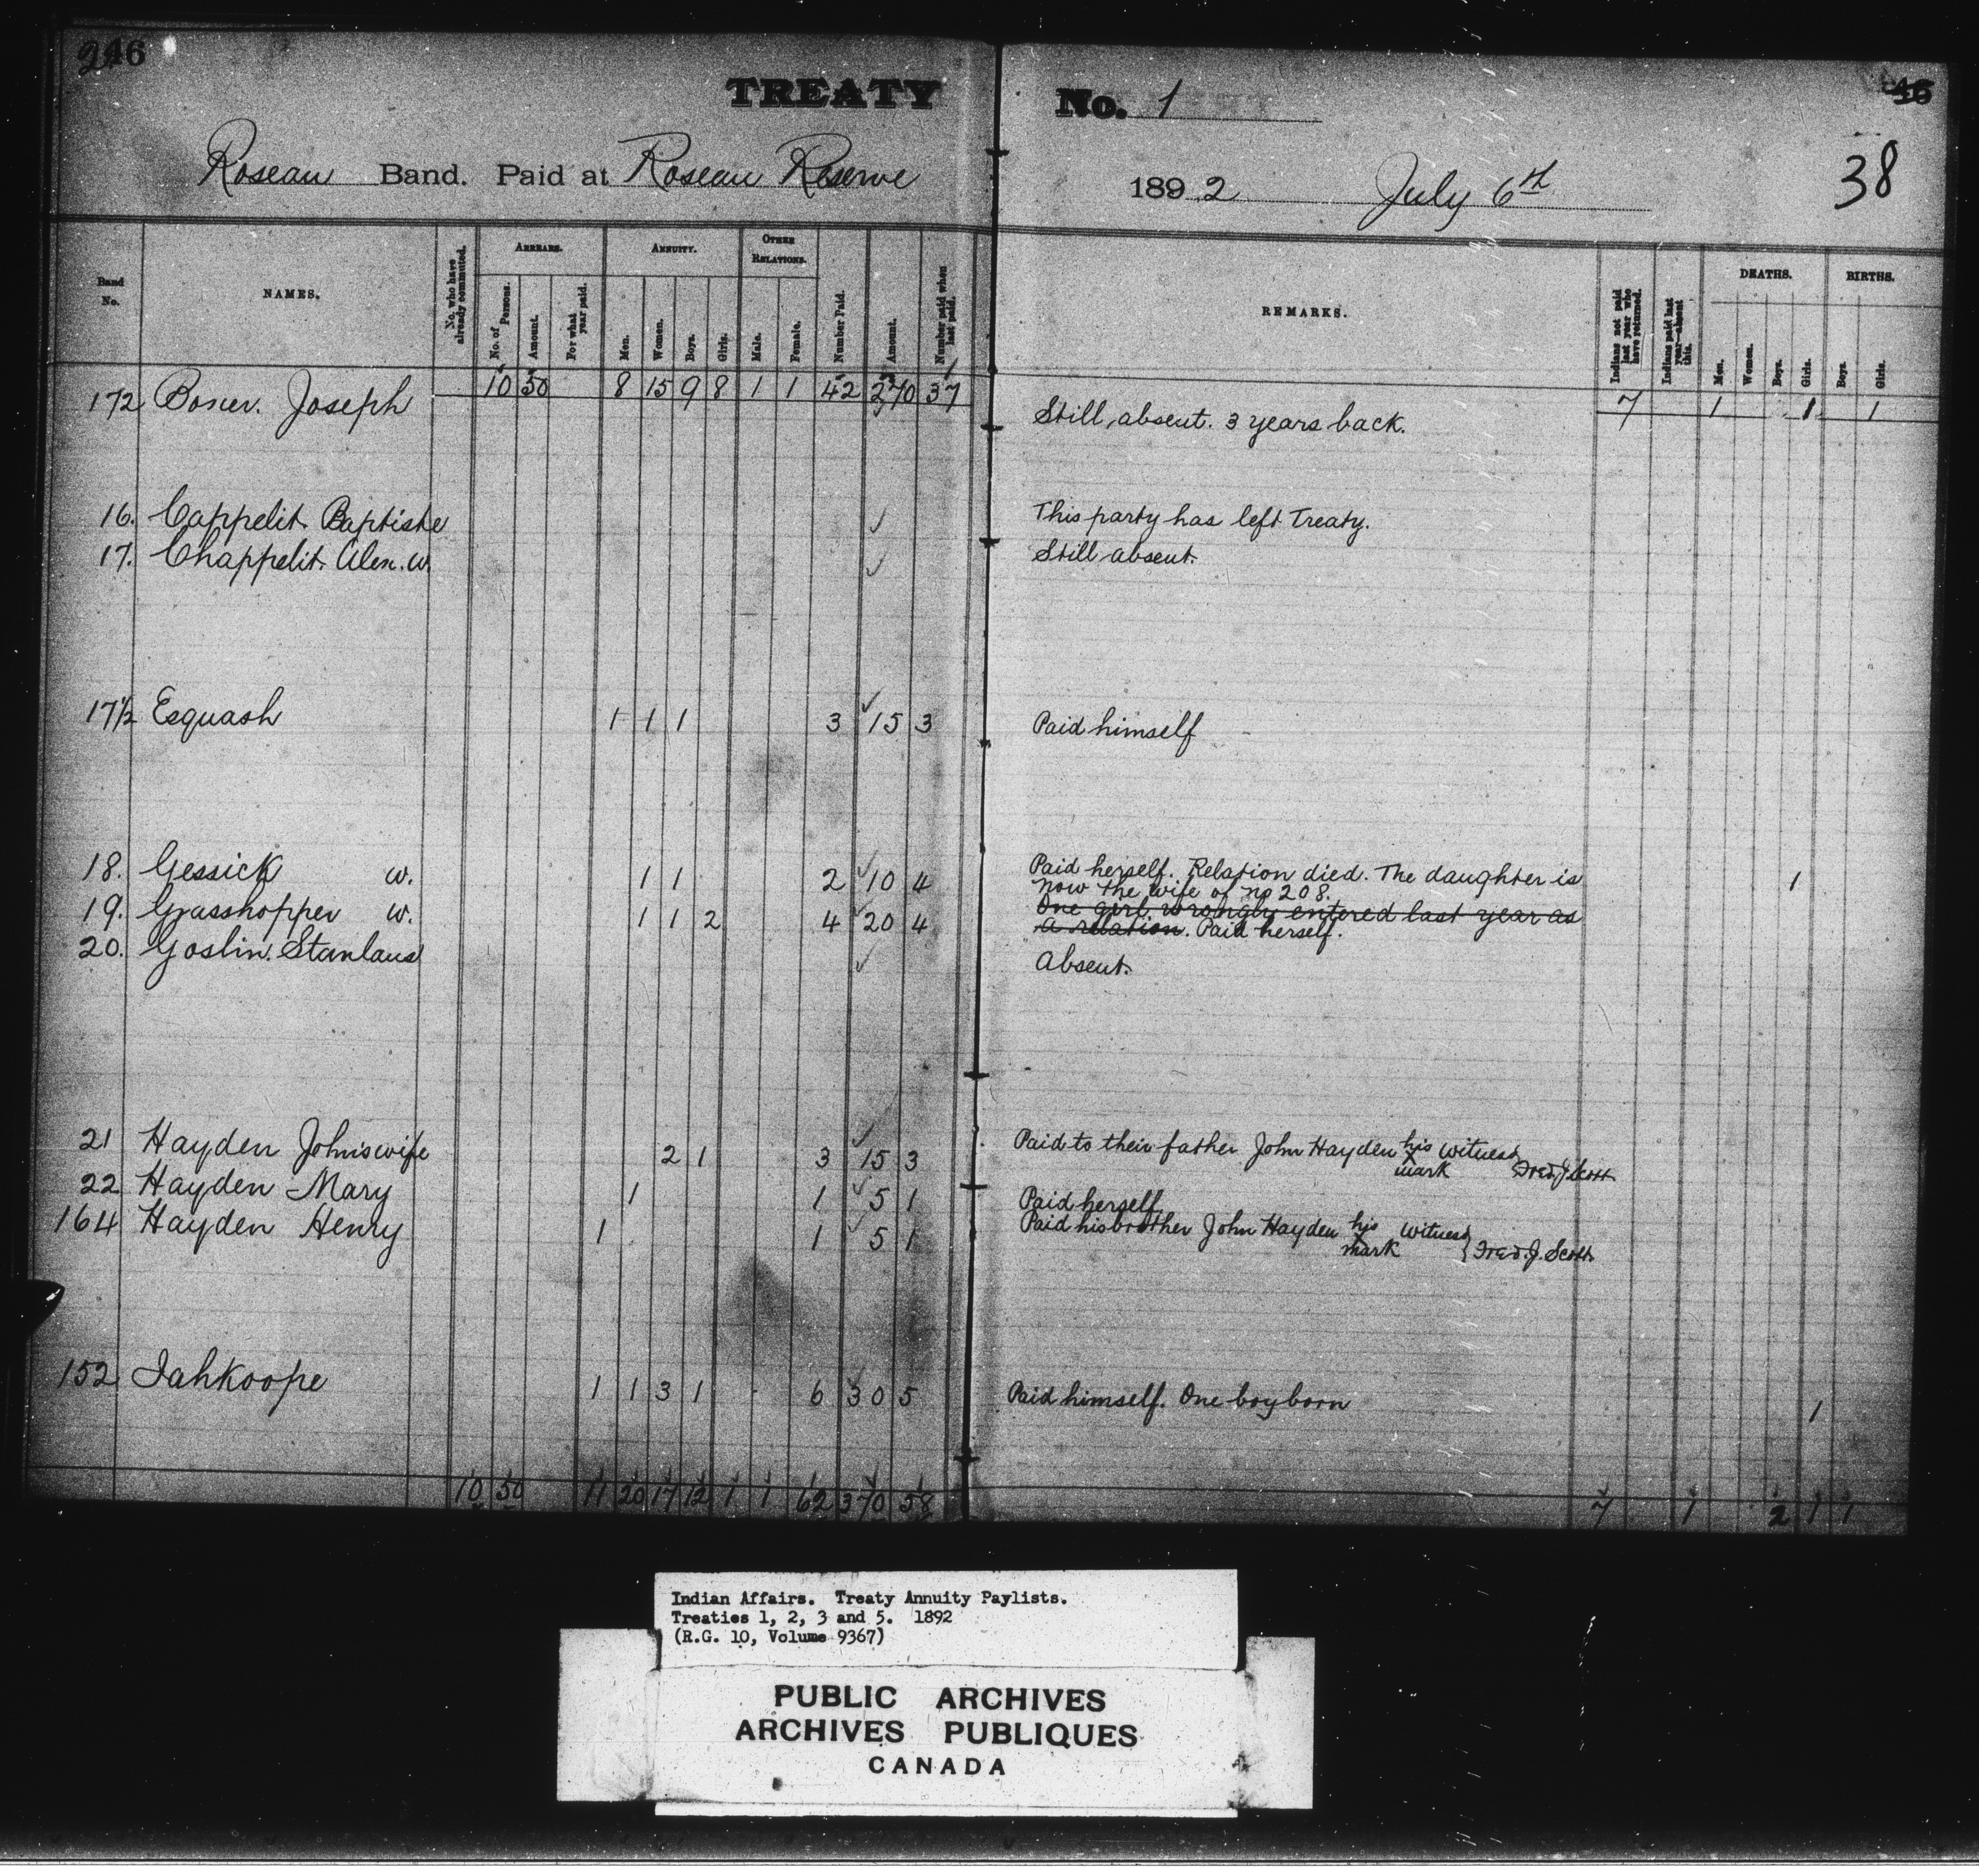 246
TREATY No. 1
46
38
Roseau Band. Paid at Roseau Reserve 1892 July 6th
Band No.
NAMES.
No. who have already commuted.
ARREARS.
No. of Persons.
Amount.
For what year paid.
ANNUITY.
Men.
Women.
Boys.
Girls.
OTHER RELATIONS.
Male.
Female.
Number Paid.
Amount.
Number paid when last paid.
REMARKS.
Indians not paid last year who have returned.
Indians paid last year—absent this.
DEATHS.
Men.
Women.
Boys.
Girls.
BIRTHS.
Boys.
Girls.
10 50 8 15 9 8 1 1 42 270 37 7 1 1 1
172 Joseph Still absent. 3 years back.
16. Cappelit Baptiste This party has left Treaty.
17. Chappelit Alex. W. Still absent.
17½ Esquash 1 1 1 3 15 3 Paid himself
18. Gessick W. 1 1 2 10 4 Paid herself. Relation died. The daughter is 1
now the wife of No 208.
19. Grasshopper W. 1 1 2 4 20 4 One girl wrongly entered last year as
a relation. Paid herself.
20. Goslin. Stanlaus Absent.
21 Hayden John's wife 2 1 3 15 3 Paid to their father John Hayden his X mark Witness Fred J Scott
22 Hayden Mary 1 1 5 1 Paid herself
164 Hayden Henry 1 1 5 1 Paid his brother John Hayden his X mark Witness } Fred. J. Scott
152 Iahkoope 1 1 3 1 6 30 5 Paid himself. One boy born 1
10 50 11 20 17 12 1 1 62 370 58 7 1 2 1 1
Indian Affairs. Treaty Annuity Paylists.
Treaties 1, 2, 3 and 5. 1892
(R.G. 10, Volume 9367)
PUBLIC ARCHIVES
ARCHIVES PUBLIQUES
CANADA